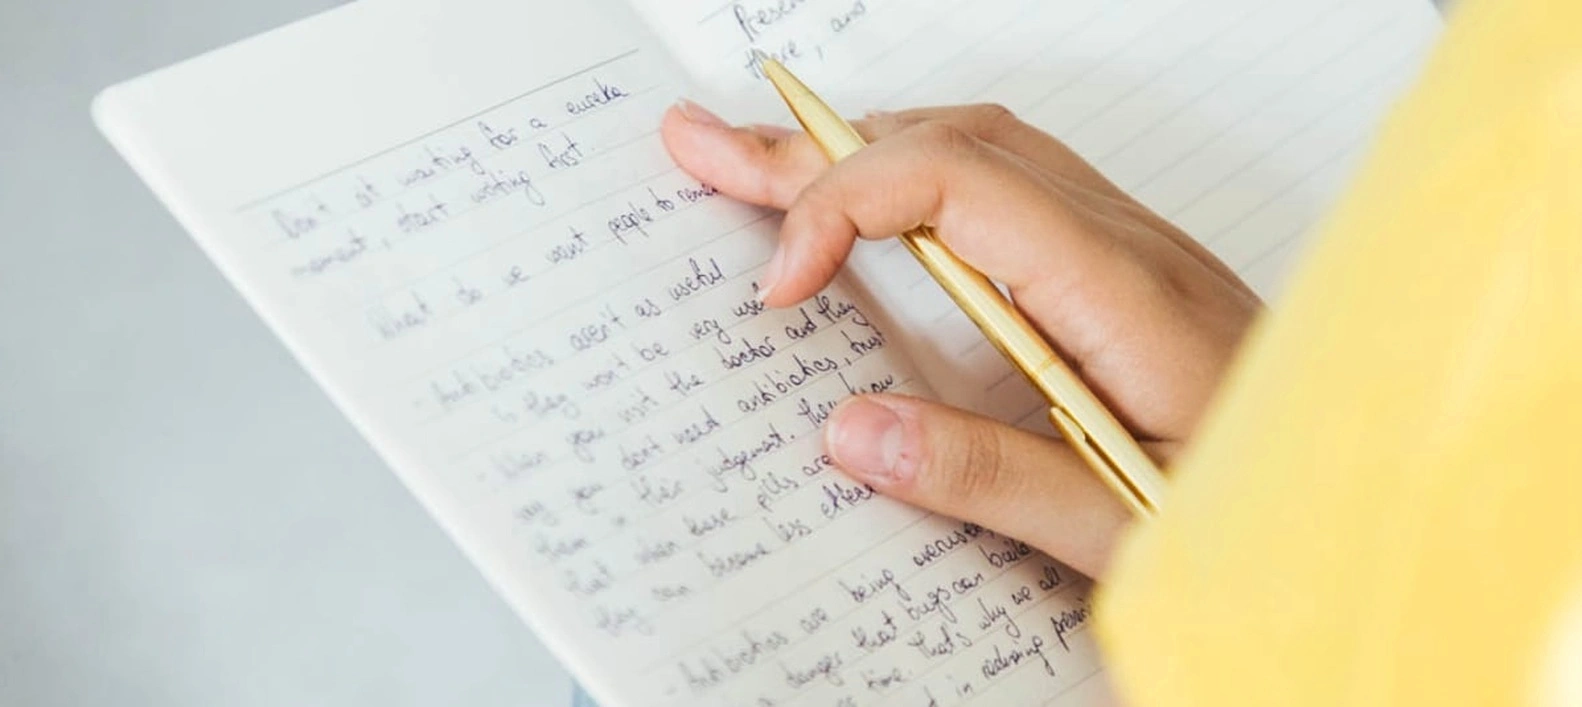 Don't sit waiting for a eureka
moment, start writing first.
What do we want people to
- Antibiotics aren't as useful
they won't be very
- When you visit the doctor and they
say you don't need antibiotics, trust
their judgement. They know
that when these pills are
they can become less
- Antibiotics are being overused,
a danger that bugs can build
time. that's why we all
in reducing
there, and